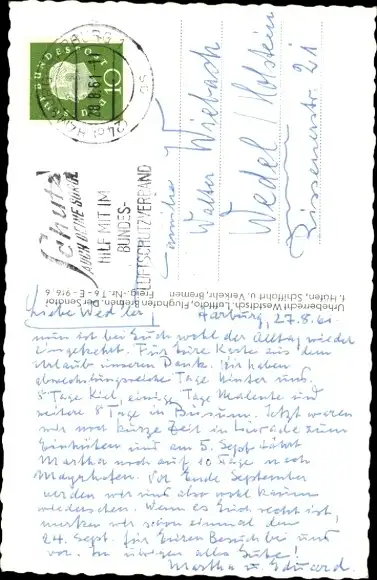 DEUTSCHE BUNDESPOST
10
Schütz'
AUCH DEINE
HILF MIT IM
BUNDES-
LUFTSCHUTZVERBAND
Familie
Walter Wiebach
Wedel/Holstein
Rissenerstr. 21
Urheberrecht Westdtsch. Luftfoto, Flughafen Bremen. Der Sendtor
f. Häfen, Schiffahrt u. Verkehr, Bremen Freig.-Nr. T 6 - E - 916
Liebe Wedeler, Harburg, 27.8.61.
nun ist bei Euch wohl der Alltag wieder
eingekehrt. Für Eure Karte aus dem
Urlaub unseren Dank. Wir haben
abwechslungsreiche Tage hinter uns.
8 Tage Kiel, einige Tage Malente und
weitere 8 Tage in Büsum. Jetzt waren
wir noch kurze Zeit in zum
Einhüten und am 5. Sept. fährt
Martha noch auf 10 Tage nach
Mayrhofen. Vor Ende September
werden wir uns also wohl kaum
wiedersehen. Wenn es Euch recht ist
merken wir schon einmal den
24. Sept. für Euren Besuch bei uns
vor. Im übrigen alles Gute!
Martha u. Eduard.